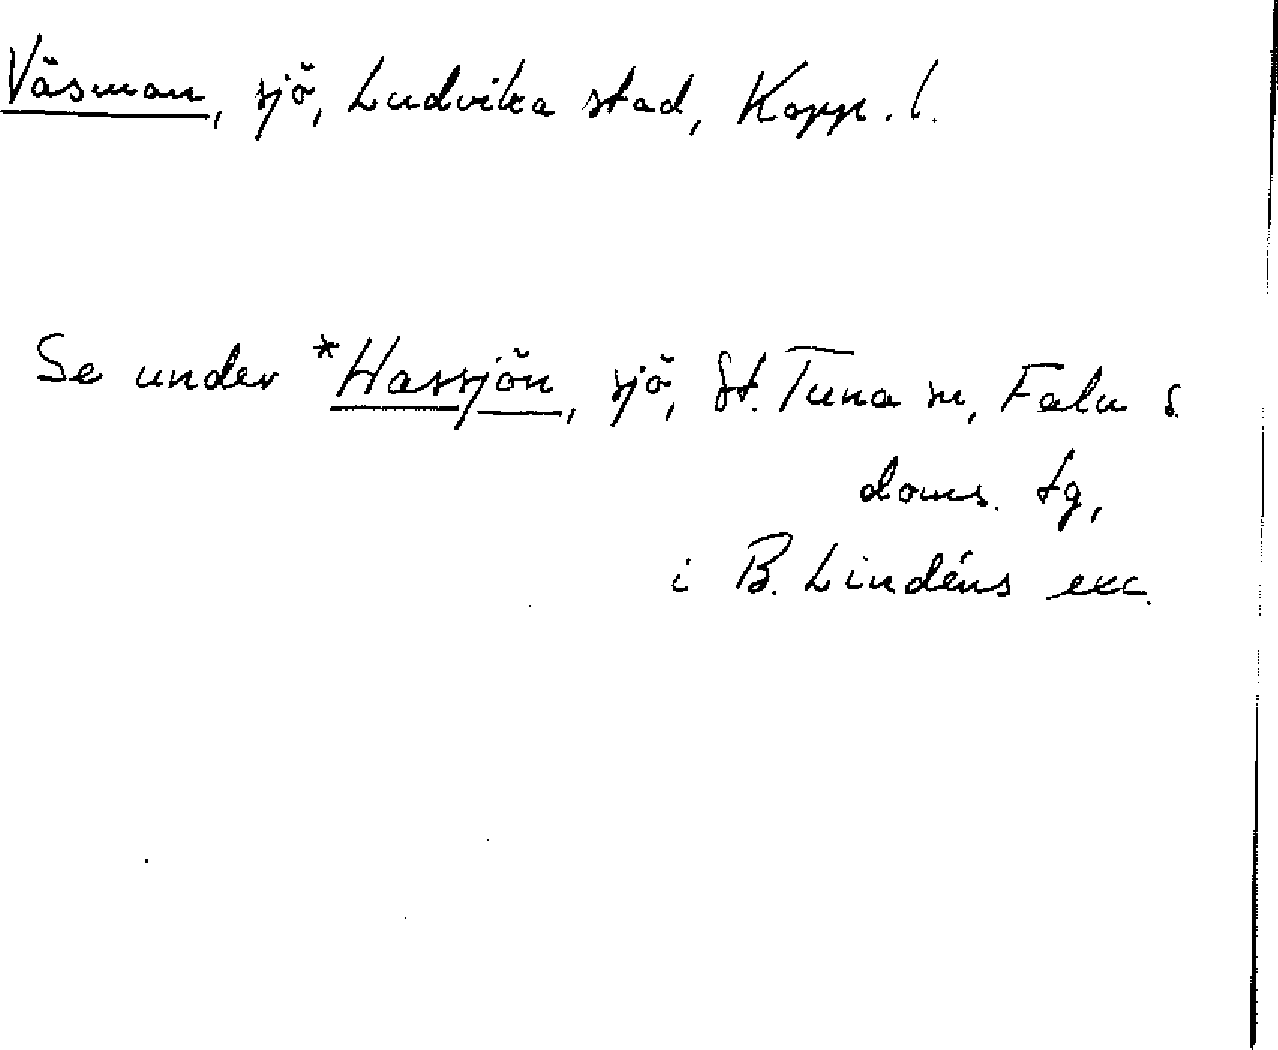 Väsman, sjö, Ludvika stad, Kopp. l.
Se under *Hassjön, sjö, St. Tuna sn, Falu s.
doms. tg,
i B. Lindéns exc.